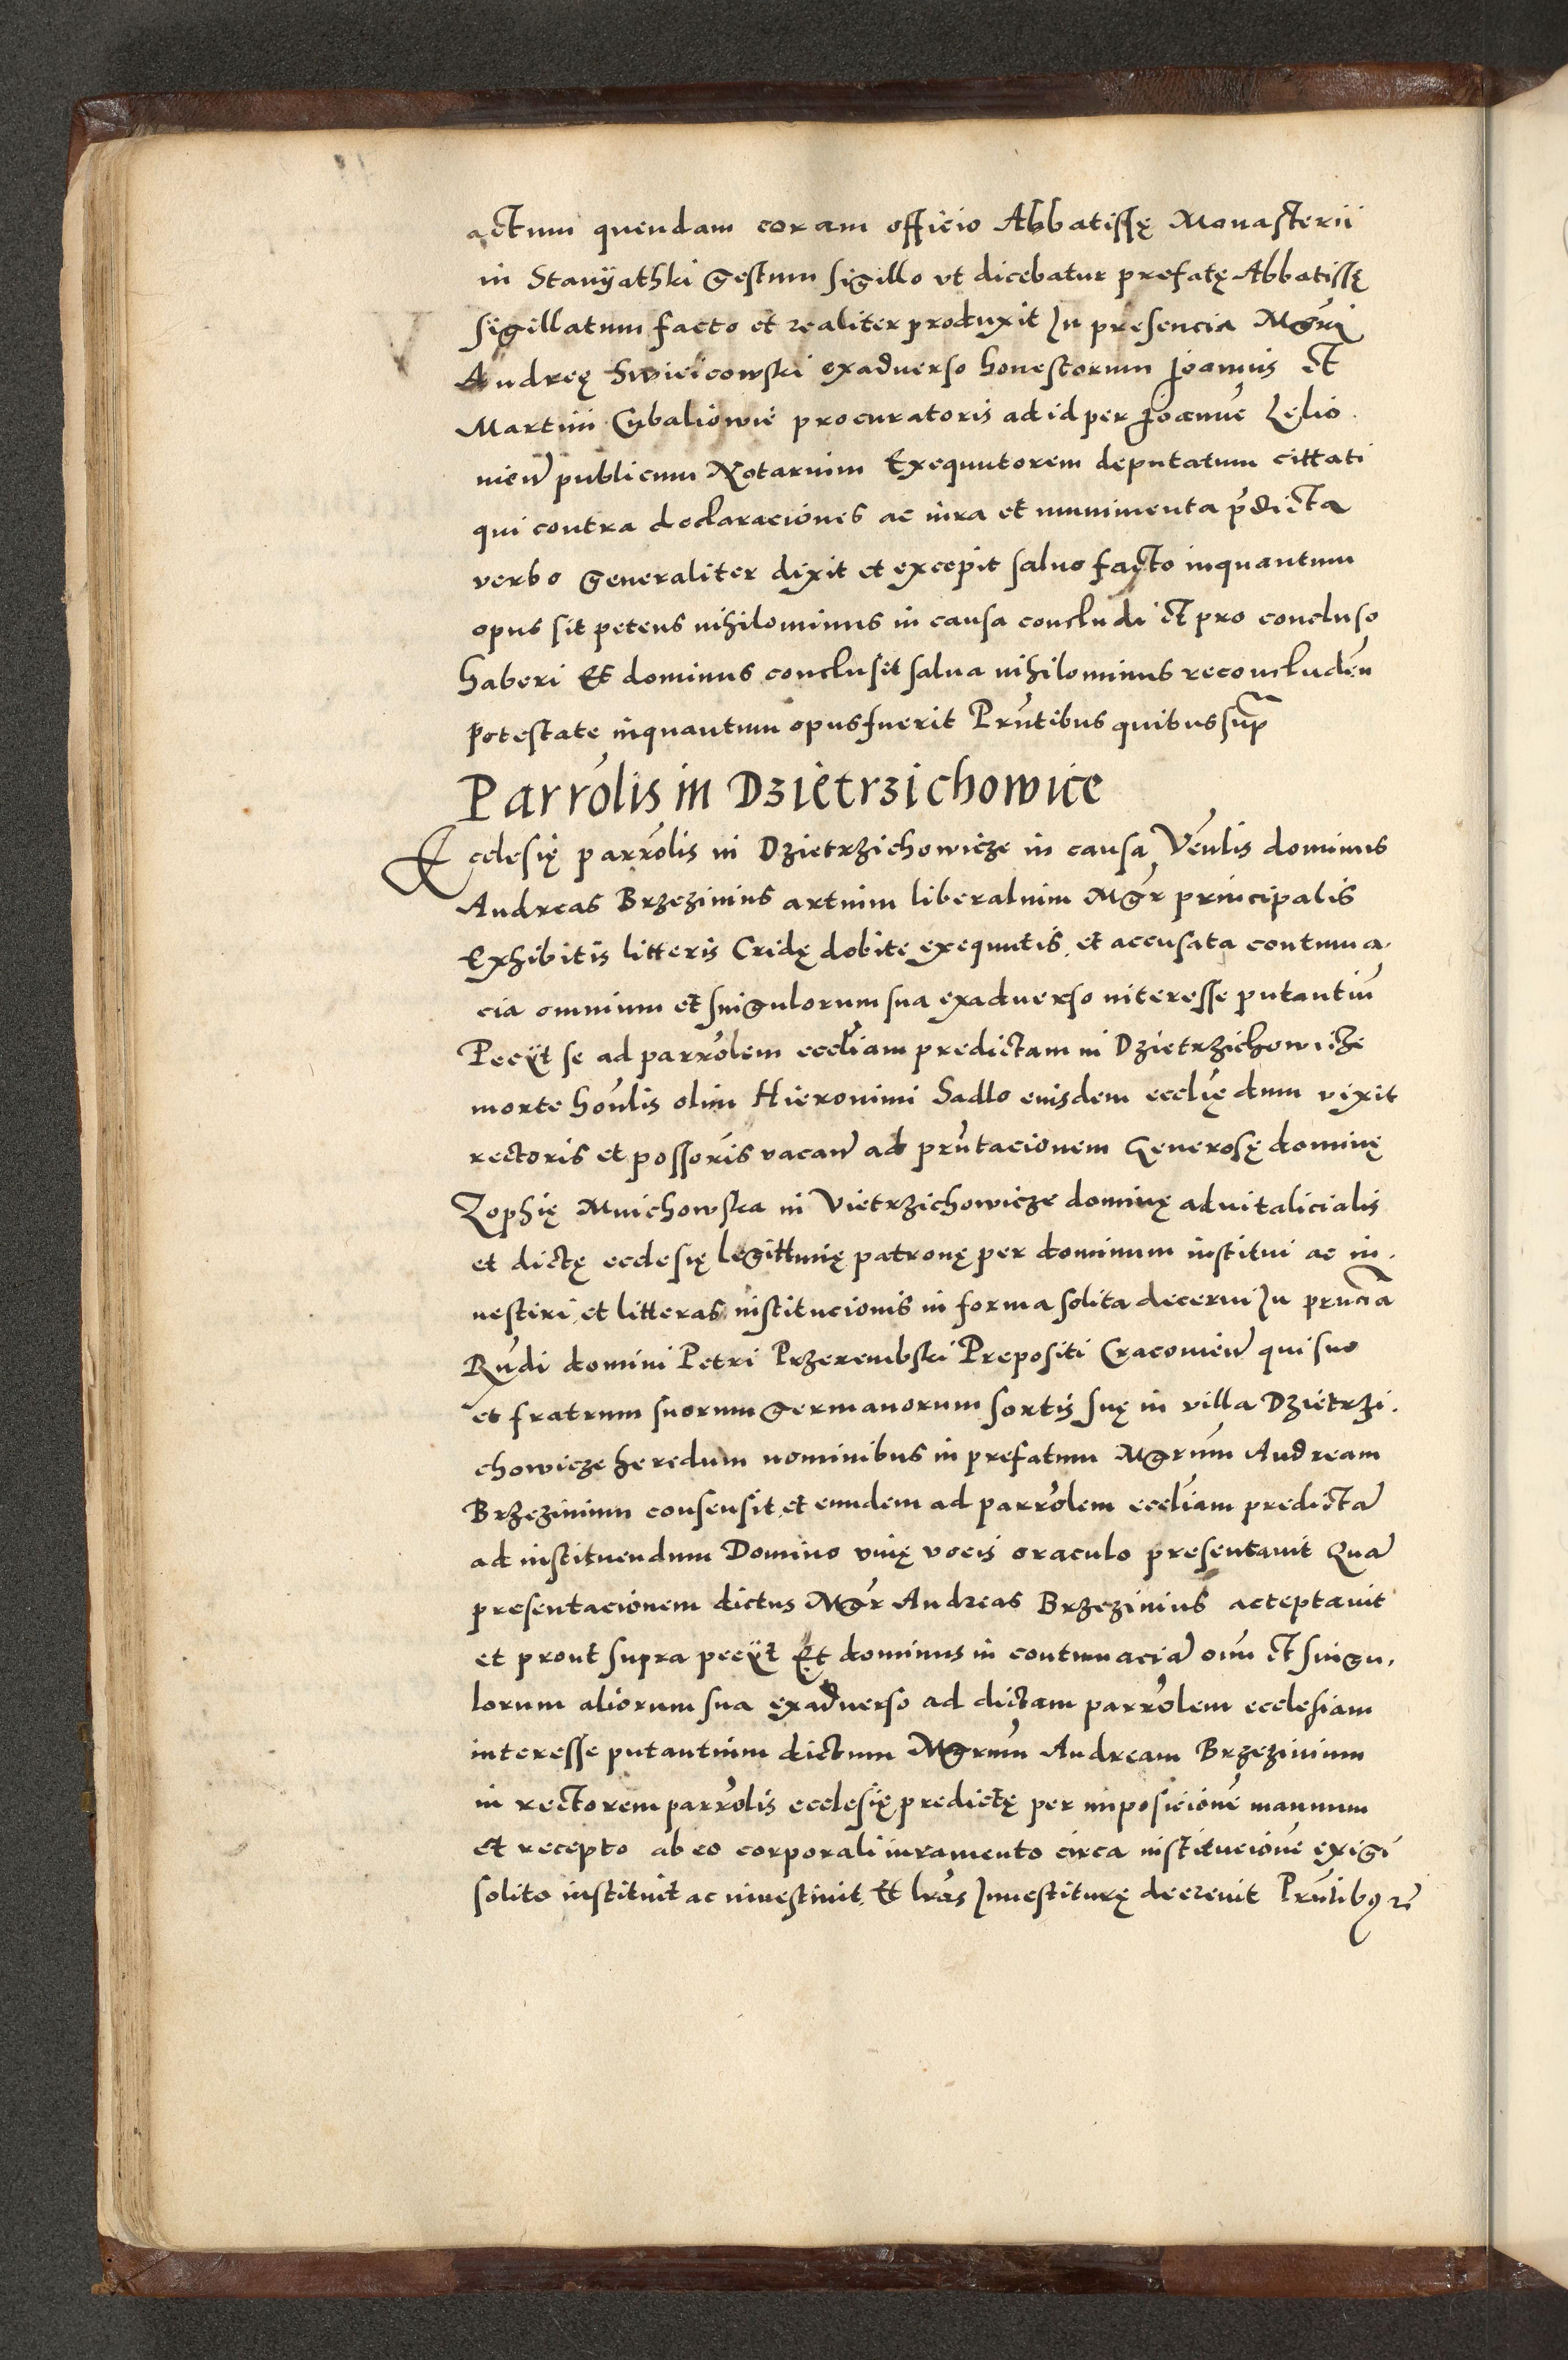 actum quendam coram officio Abbatissę Monasterii
in Stanÿathki gestum sigillo vt dicebatur prefatę Abbatissę
sigillatum facto et realiter produxit In presencia Mgri
Andreę Swieicowski exaduerso honestorum Joannis et
Martini Cybaliowie procuratoris ad id per Joannē Zelio
nien̄ publicum Notarium Exequutorem deputatum cittati
qui contra declaraciones ac iura et munimenta p̄dicta
verbo generaliter dixit et excepit saluo facto inquantum
opus sit petens nihilominus in causa concludi et pro concluso
haberi Et dominus conclusit salua nihilominus reconcluden̄
potestate inquantum opus fuerit Prn̄tibus quibus sup̄
Parro͞lis in Dzietrzichowice
Ecclesię parro͞lis in Dzietrzichowicze in causa Ven̄lis dominus
Andreas Brzezinius artium liberalium Mgr̄ principalis
Exhibitis litteris Cridę debite exequutis, et accusata contuma.
cia omnium et singulorum sua exaduerso interesse putantiū
Peciit se ad parro͞lem eccl̄iam predictam in Dzietrzichowicze
morte hon̄lis olim Hieronimi Sadlo eiusdem eccl̄ię dum vixit
rectoris et possor̄is vacan̄ ad prn̄tacionem Generosę dominę
Zophię Mnichowska in Vietrzichowicze dominę aduitalicialis
et dictę ecclesię legittimę patronę per dominum institui ac in.
uestiri, et litteras institucionis in forma solita decerni In prn̄cia
Rn̄di domini Petri Przerembski Prepositi Cracouien̄ qui suo
et fratrum suorum germanorum sortis suę in villa Dzietrzi.
chowicze heredum nominibus in prefatum Mgrum̄ Andream
Brzezinium consensit, et eundem ad parro͞lem eccl̄iam predictā
ad instituendum Domino viuę vocis oraculo presentauit Quā
presentacionem dictus Mgr̄ Andreas Brzezinius acceptauit
et prout supra peciit Et dominus in contumaciā oiu͞m et singu.
lorum aliorum sua exaduerso ad dictam parro͞lem ecclesiam
interesse putantium dictum Mgrum̄ Andream Brzezinium
in rectorem parro͞lis ecclesię predictę per imposicionē manuum
et recepto ab eo corporali iuramento circa institucionē exigi
solito instituit ac inuestiuit, Et lr̄as Inuestiturę decreuit Prn̄tibꝰ